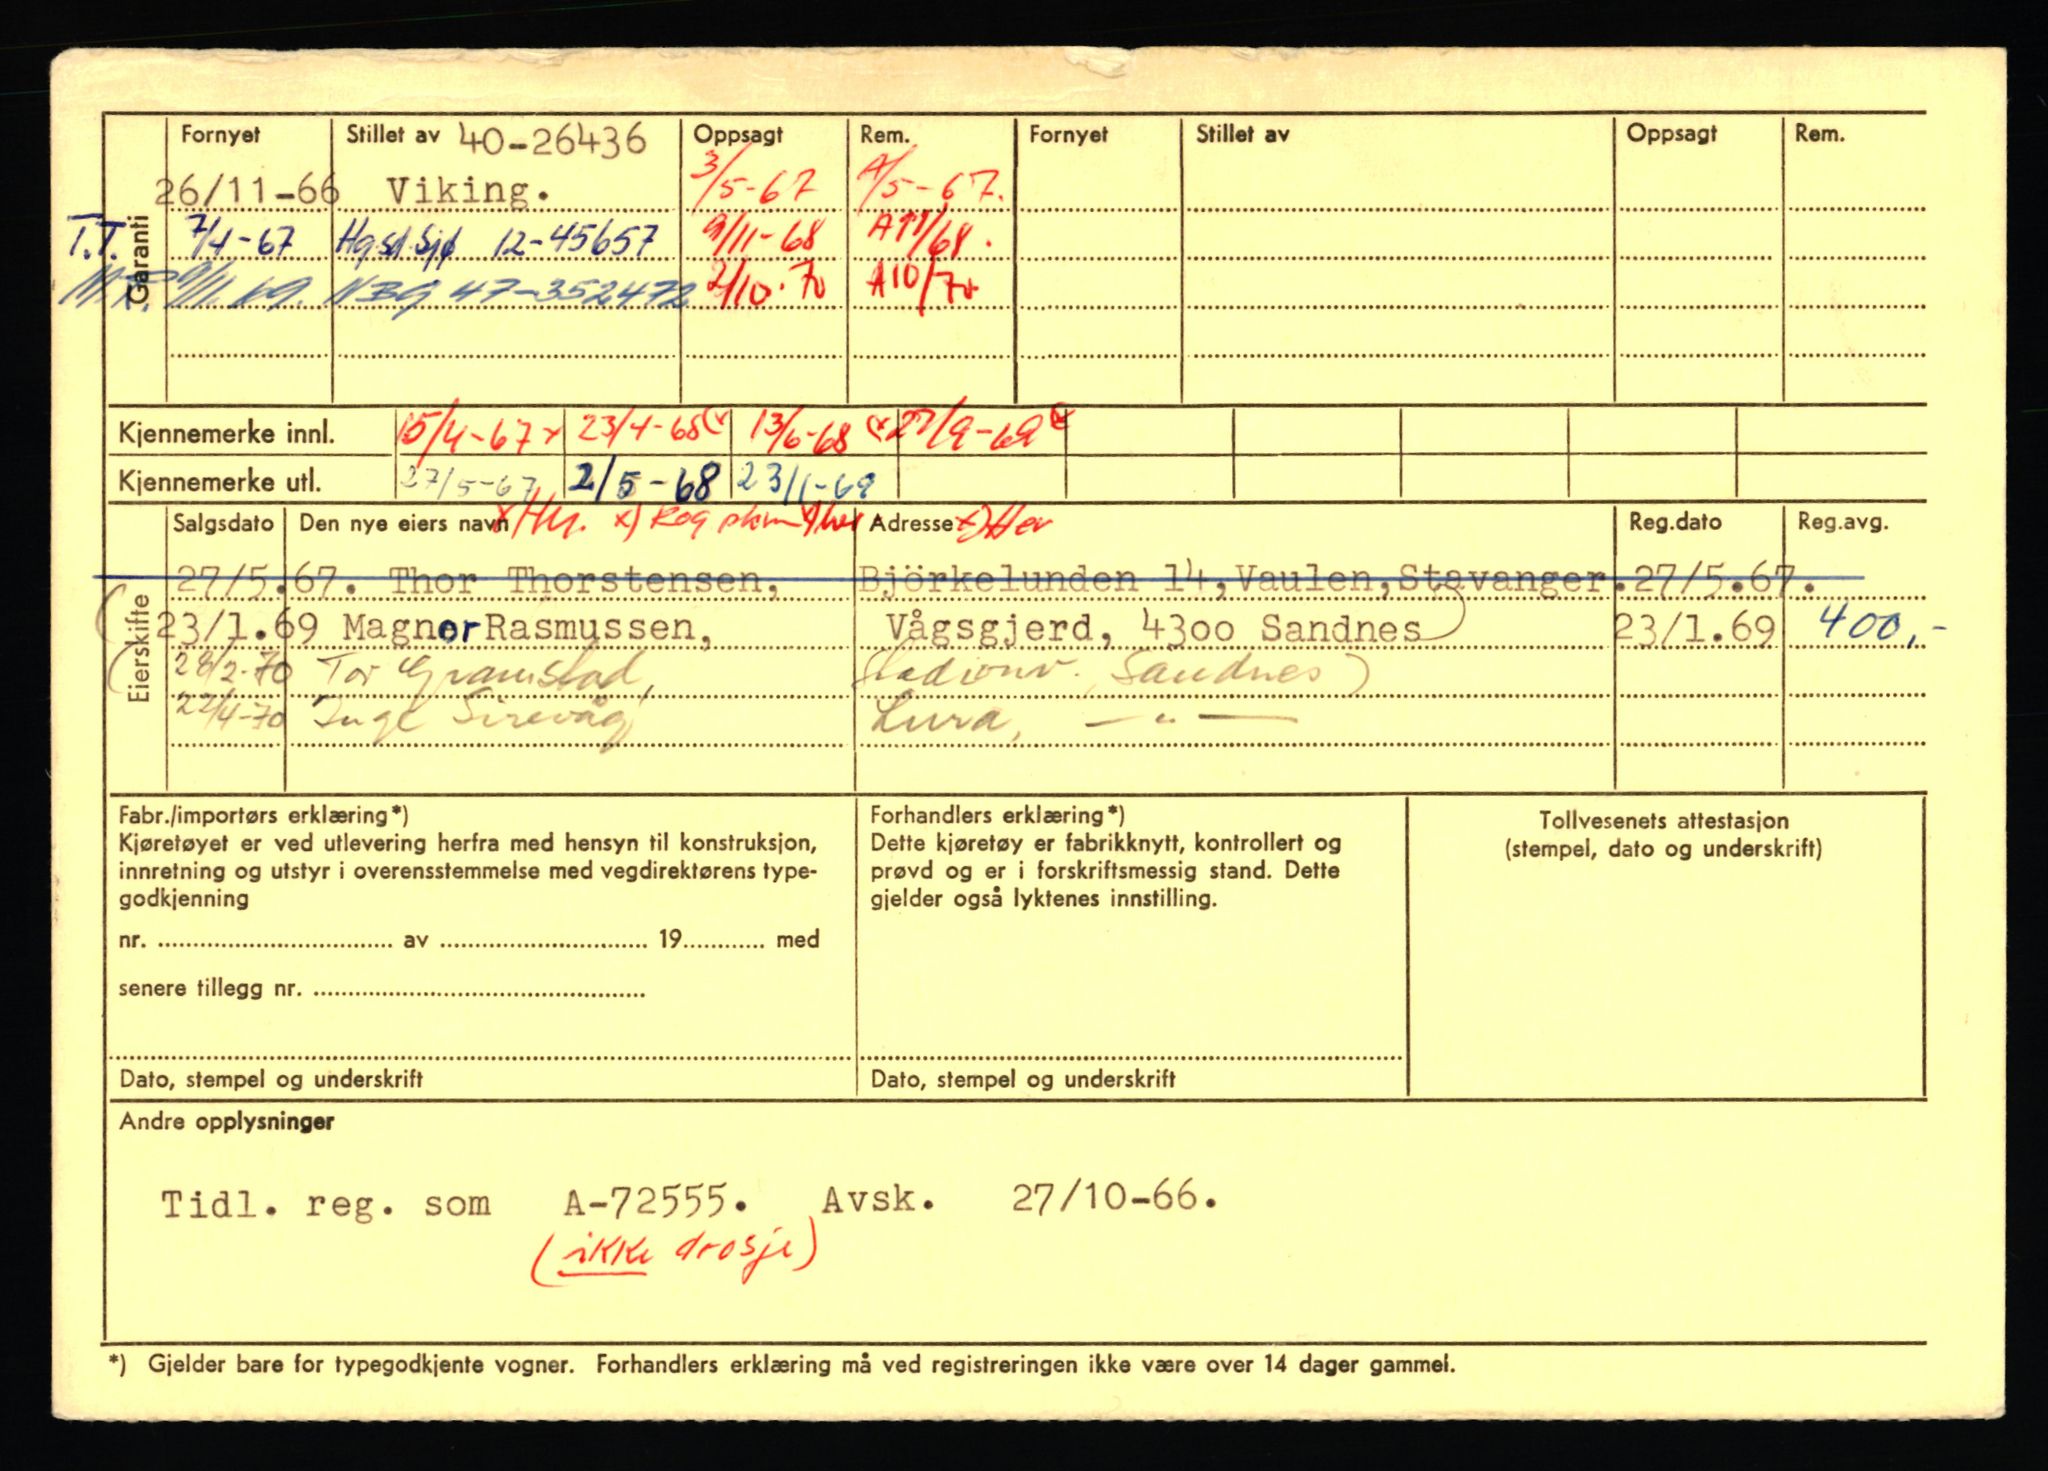 Fornyet Stillet av 40-26436 Oppsagt Rem. Fornyet Stillet av Oppsagt Rem.
26/11-66 Viking. 3/5-67 A/5-67.
T.T. 7/4-67 12-45657 9/11-68 A11/68.
69. 47-352472 2/10.70 A10/70
Garanti
Kjennemerke innl. 15/4-67 x 23/4-68 (x 13/6-68 (x 27/9-69
Kjennemerke utl. 27/5-67 2/5-68 23/1-69
Salgsdato Den nye eiers navn Adresse Reg.dato Reg.avg.
27/5.67. Thor Thorstensen, Björkelunden 14, Vaulen, Stavanger. 27/5.67.
23/1.69 Magnor Rasmussen, Vågsgjerd, 4300 Sandnes 23/1.69 400,-
28/2-70 Tor Gramstad, Stadionv. Sandnes)
22/4-70 Inge Sirevåg Lura, — „ —
Eierskifte
Fabr./importørs erklæring*) Forhandlers erklæring*) Tollvesenets attestasjon
Kjøretøyet er ved utlevering herfra med hensyn til konstruksjon, Dette kjøretøy er fabrikknytt, kontrollert og (stempel, dato og underskrift)
innretning og utstyr i overensstemmelse med vegdirektørens type- prøvd og er i forskriftsmessig stand. Dette
godkjenning gjelder også lyktenes innstilling.
nr. av 19 med
senere tillegg nr.
Dato, stempel og underskrift Dato, stempel og underskrift
Andre opplysninger
Tidl. reg. som A-72555. Avsk. 27/10-66.
(ikke drosje)
*) Gjelder bare for typegodkjente vogner. Forhandlers erklæring må ved registreringen ikke være over 14 dager gammel.